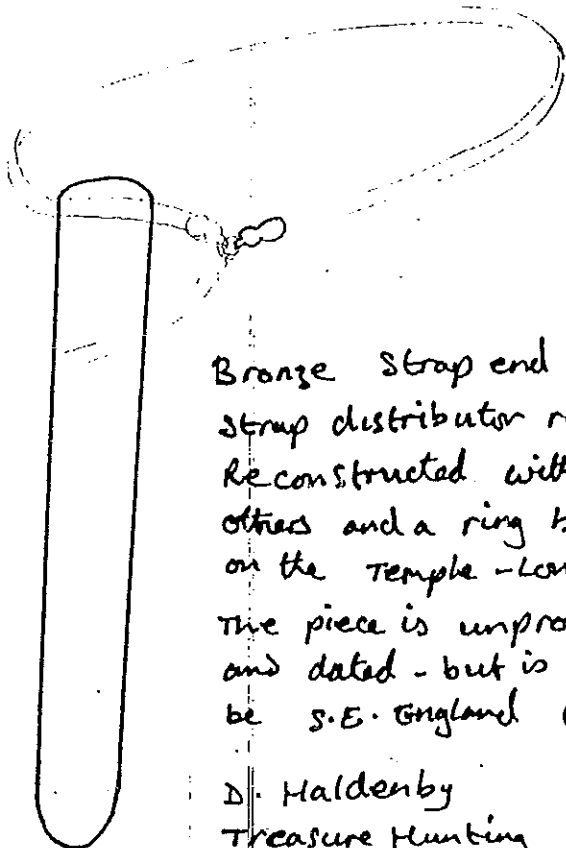 Bronze Strap end
Strap distributor
Reconstructed with
others and a ring
on the Temple -
The piece is
and dated - but is
be S.E. England
D. Haldenby
Treasure Hunting